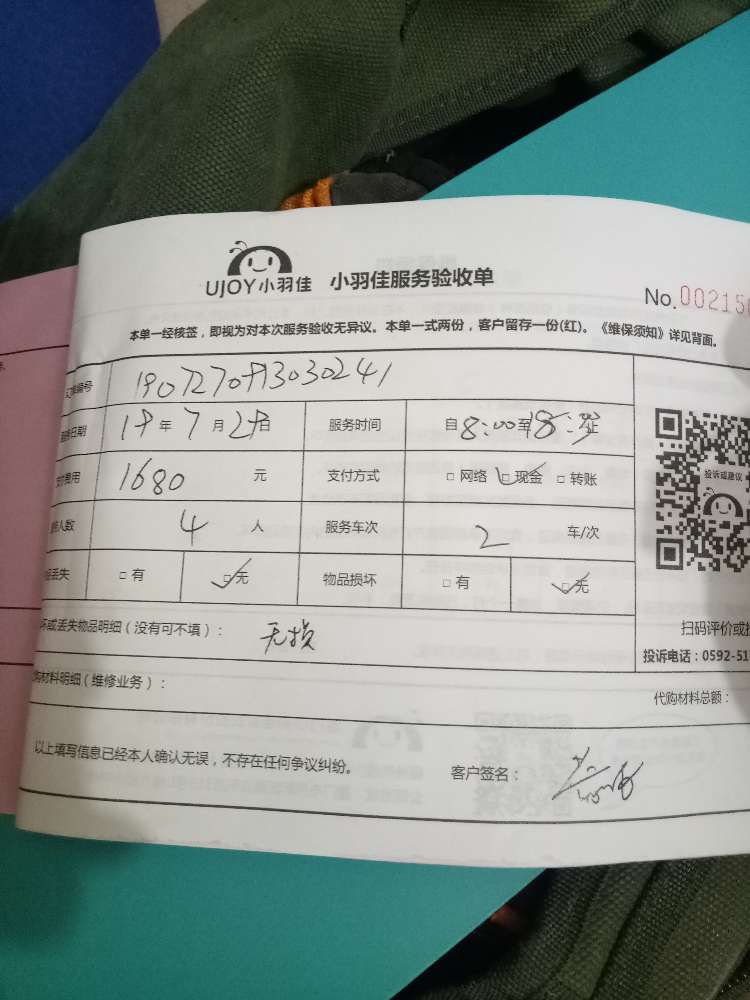 UJOY小羽佳 小羽佳服务验收单
No.002150
本单一经核签，即视为对本次服务验收无异议。本单一式两份，客户留存一份(红)。《维保须知》详见背面。
编号
日期 19年7月28日 服务时间 自8:00至
费用 1680 元 支付方式 □ 网络 □ 现金 □ 转账
人数 4 人 服务车次 2 车/次
丢失 □ 有 □ 无 物品损坏 □ 有 □ 无
坏或丢失物品明细（没有可不填）： 无损
购材料明细（维修业务）：
代购材料总额：
投诉或建议
扫码评价或
投诉电话：0592-51
以上填写信息已经本人确认无误，不存在任何争议纠纷。
客户签名：